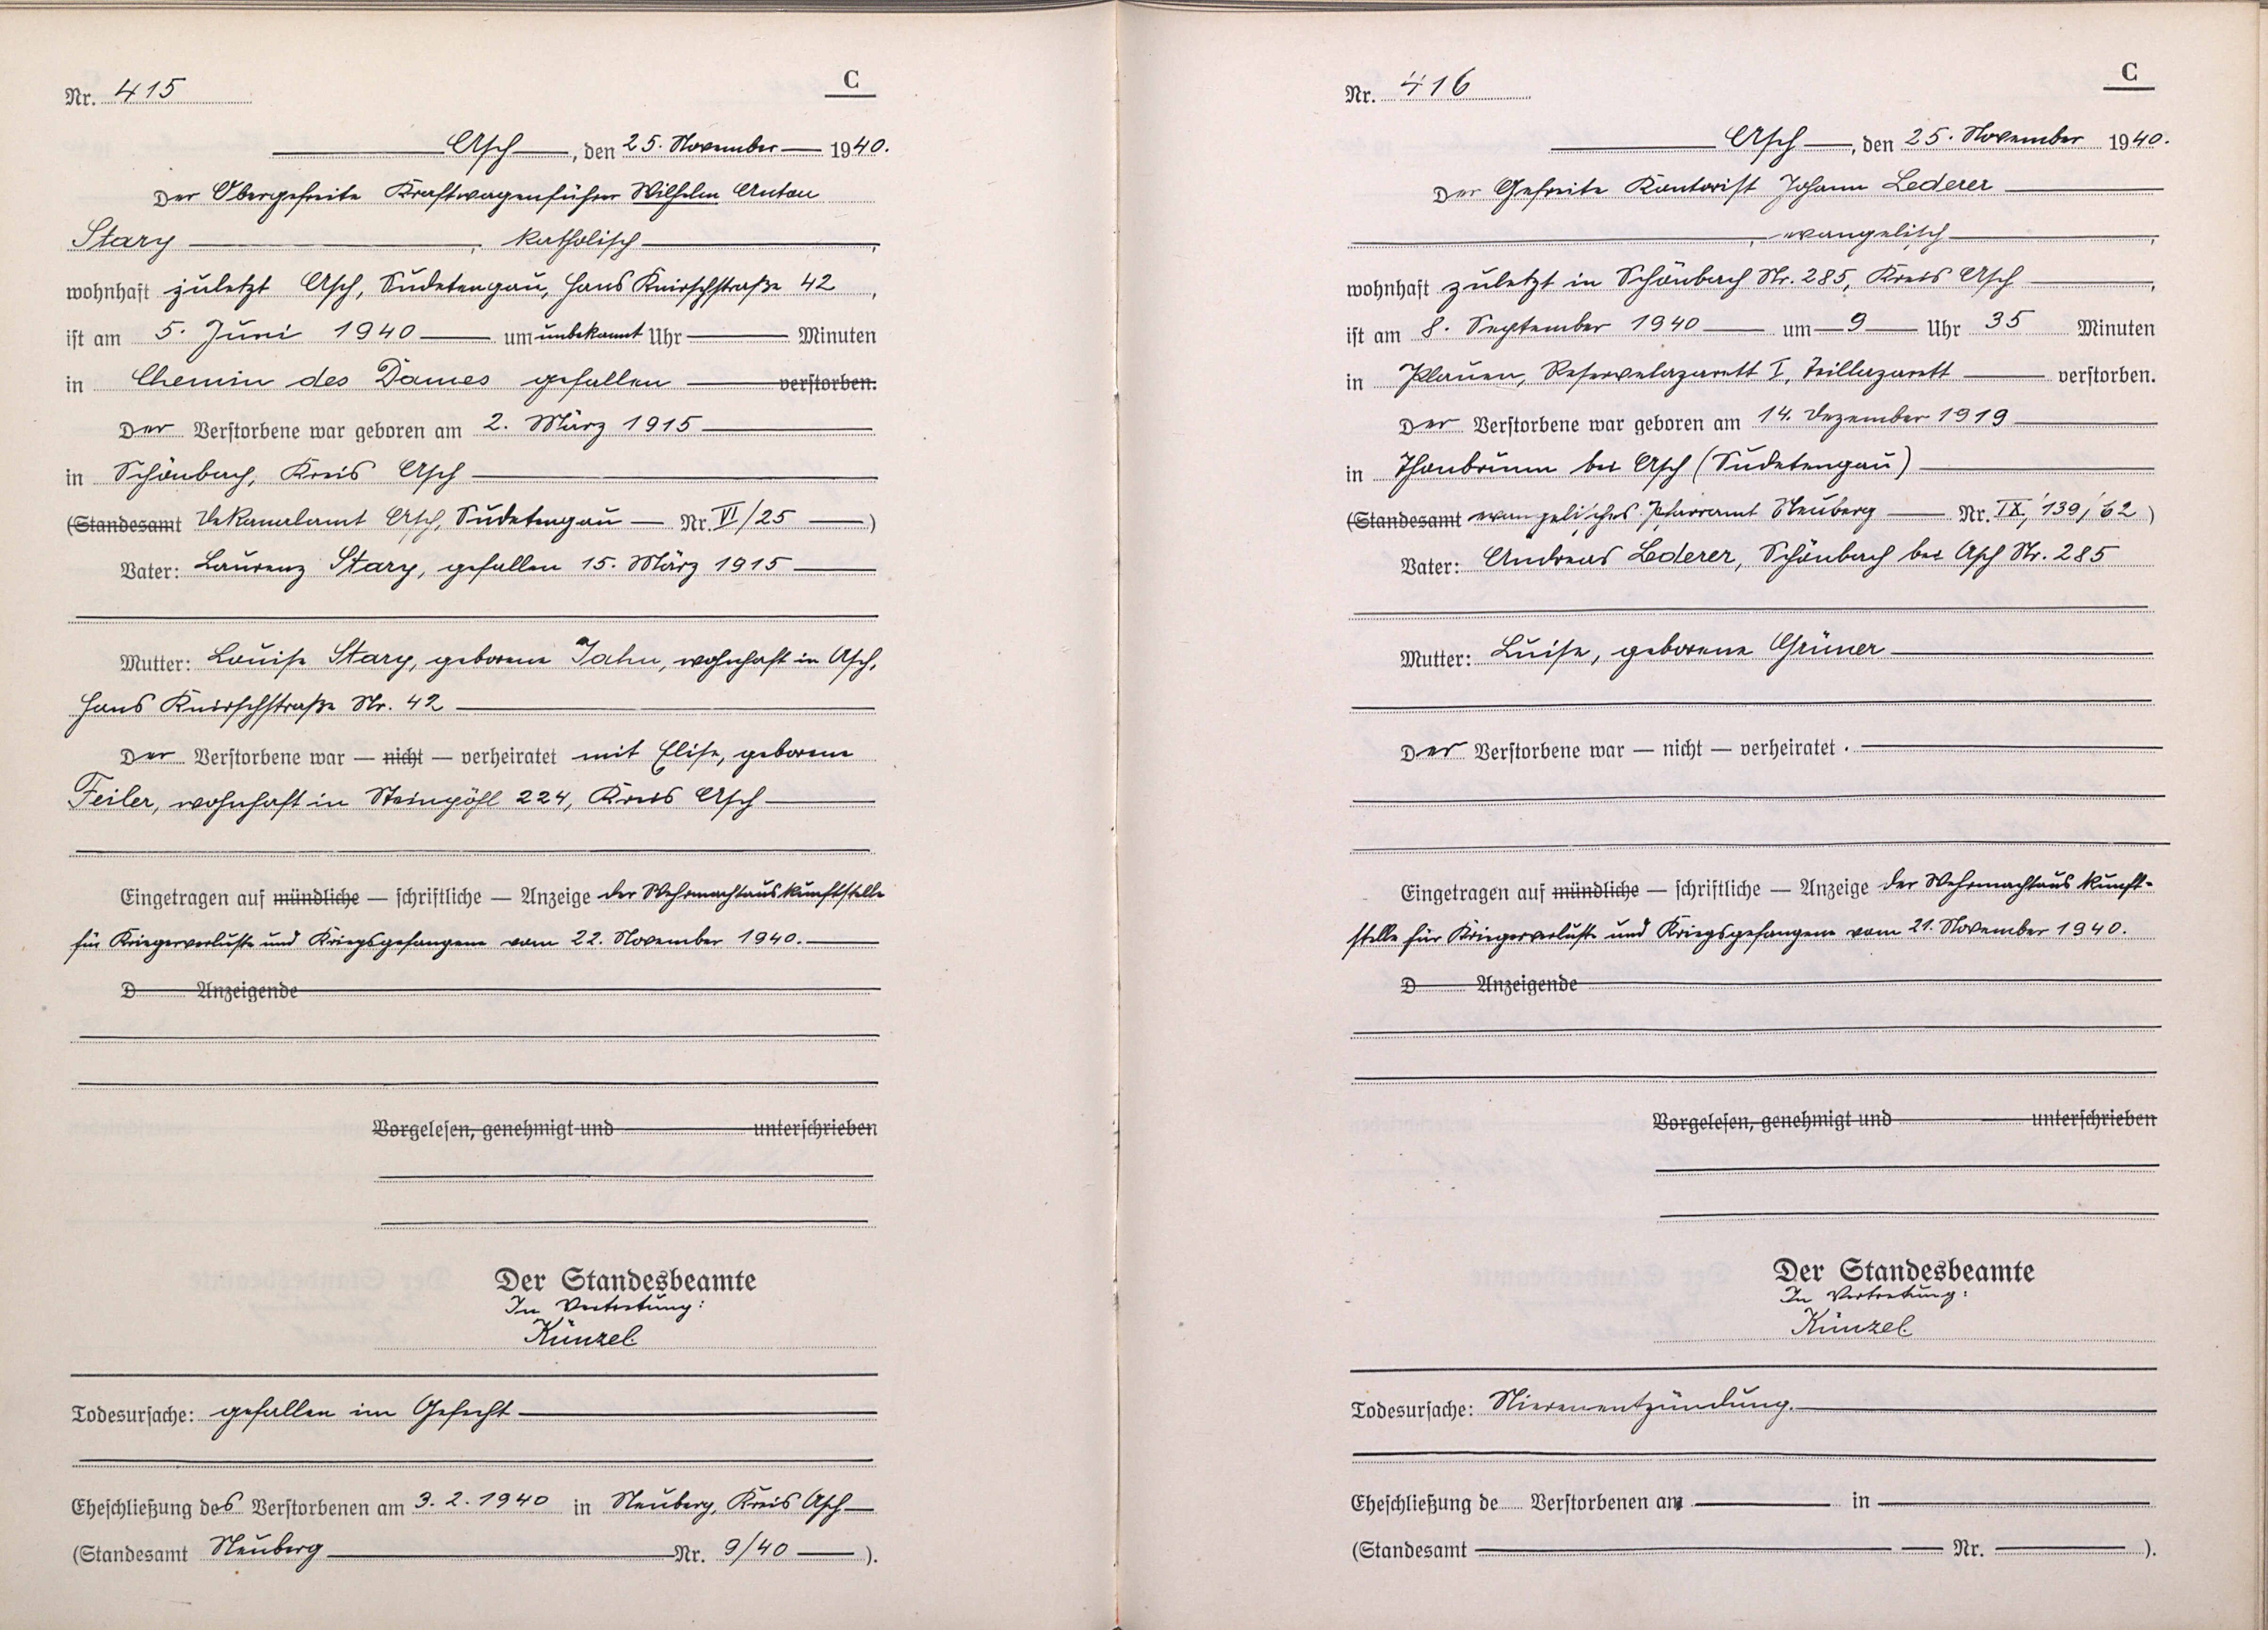 Nr. 415
C
Asch, den 25. November 1940.
Der Obergefreite Kraftwagenführer Wilhelm Anton
Stary, katholisch,
wohnhaft zuletzt Asch, Sudetengau, Hans Knirschstraße 42,
ist am 5. Juni 1940 um unbekannt Uhr Minuten
in Chemin des Dames gefallen verstorben.
Der Verstorbene war geboren am 2. März 1915
in Schönbach, Kreis Asch
(Standesamt Dekanalamt Asch, Sudetengau Nr. VI/25)
Vater: Laurenz Stary, gefallen 15. März 1915
Mutter: Louise Stary, geborene Jahn, wohnhaft in Asch,
Hans Knirschstraße Nr. 42
Der Verstorbene war — nicht — verheiratet mit Elise, geborene
Feiler, wohnhaft in Steinpöhl 224, Kreis Asch
Eingetragen auf mündliche — schriftliche — Anzeige der Wehrmachtauskunftstelle
für Kriegerverluste und Kriegsgefangene vom 22. November 1940.
D Anzeigende
Vorgelesen, genehmigt und unterschrieben
Der Standesbeamte
In Vertretung:
Künzel.
Todesursache: gefallen im Gefecht
Eheschließung des Verstorbenen am 3. 2. 1940 in Neuberg, Kreis Asch
(Standesamt Neuberg Nr. 9/40).
Nr. 416
C
Asch, den 25. November 1940.
Der Gefreite Kontorist Johann Lederer
, evangelisch,
wohnhaft zuletzt in Schönbach Nr. 285, Kreis Asch,
ist am 8. September 1940 um 9 Uhr 35 Minuten
in Plauen, Reservelazarett I, Teillazarett verstorben.
Der Verstorbene war geboren am 14. Dezember 1919
in Thonbrunn bei Asch (Sudetengau)
(Standesamt evangelisches Pfarramt Neuberg Nr. IX/139/62)
Vater: Andreas Lederer, Schönbach bei Asch Nr. 285
Mutter: Luise, geborene Grüner
Der Verstorbene war — nicht — verheiratet.
Eingetragen auf mündliche — schriftliche — Anzeige der Wehrmachtauskunft-
stelle für Kriegerverluste und Kriegsgefangene vom 21. November 1940.
D Anzeigende
Vorgelesen, genehmigt und unterschrieben
Der Standesbeamte
In Vertretung:
Künzel
Todesursache: Nierenentzündung.
Eheschließung de Verstorbenen am in
(Standesamt Nr. ).